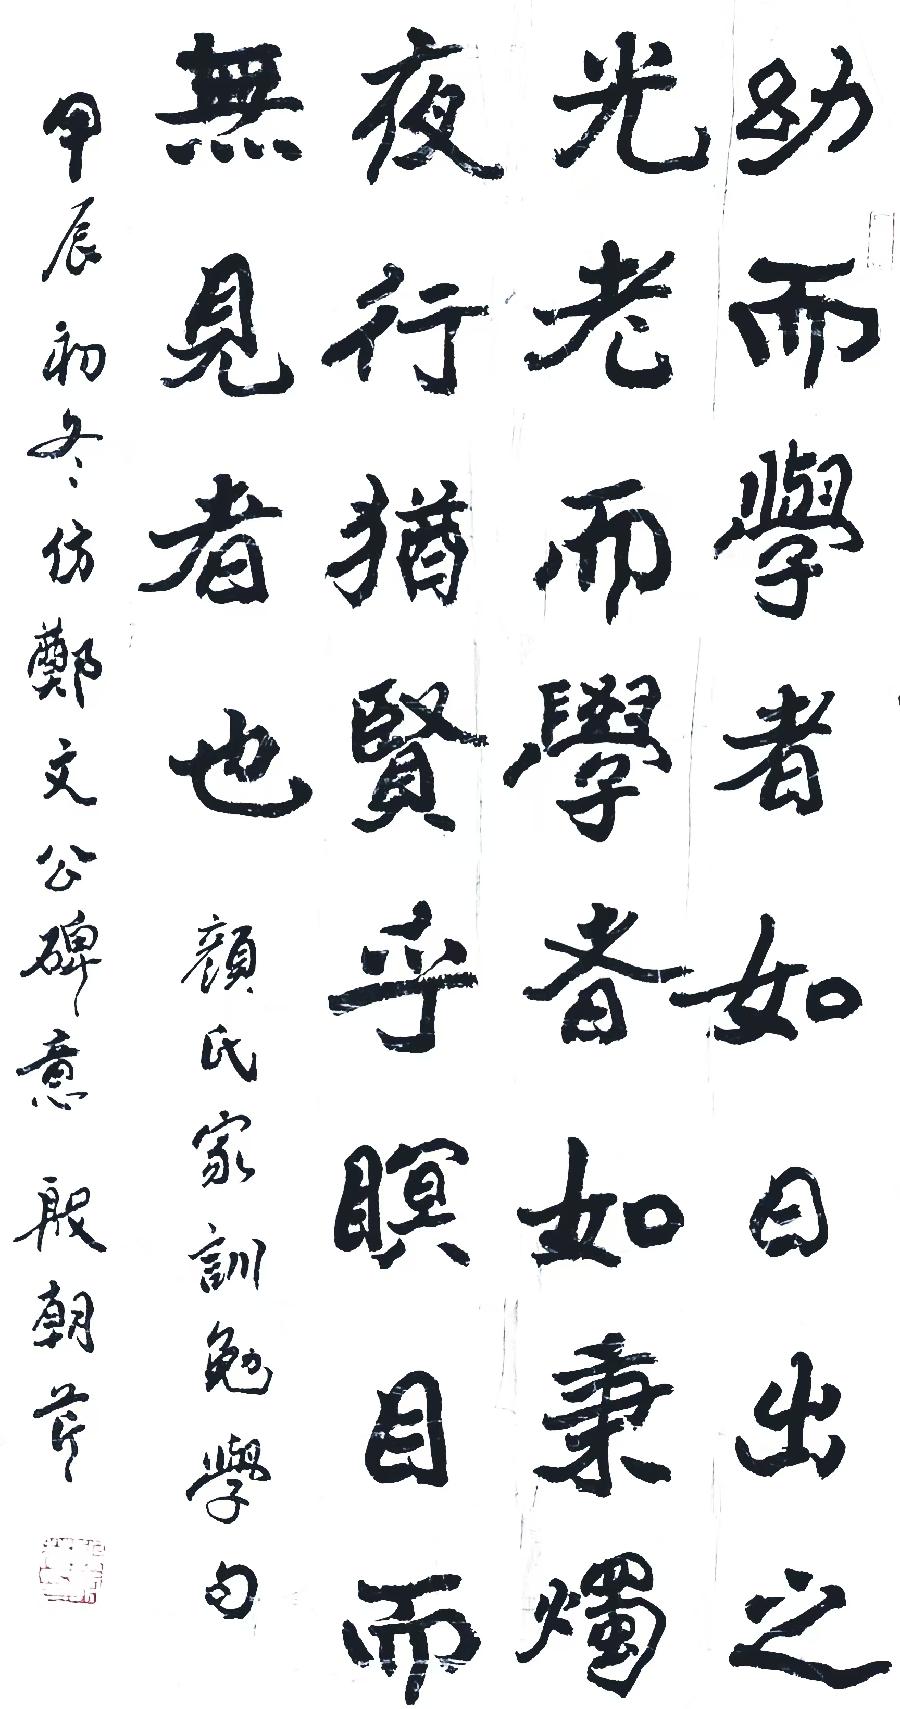 幼而學者如日出之
光老而學者如秉燭
夜行猶賢乎瞑目而
無見者也 顏氏家訓勉學句
甲辰初冬仿鄭文公碑意 殷朝芹